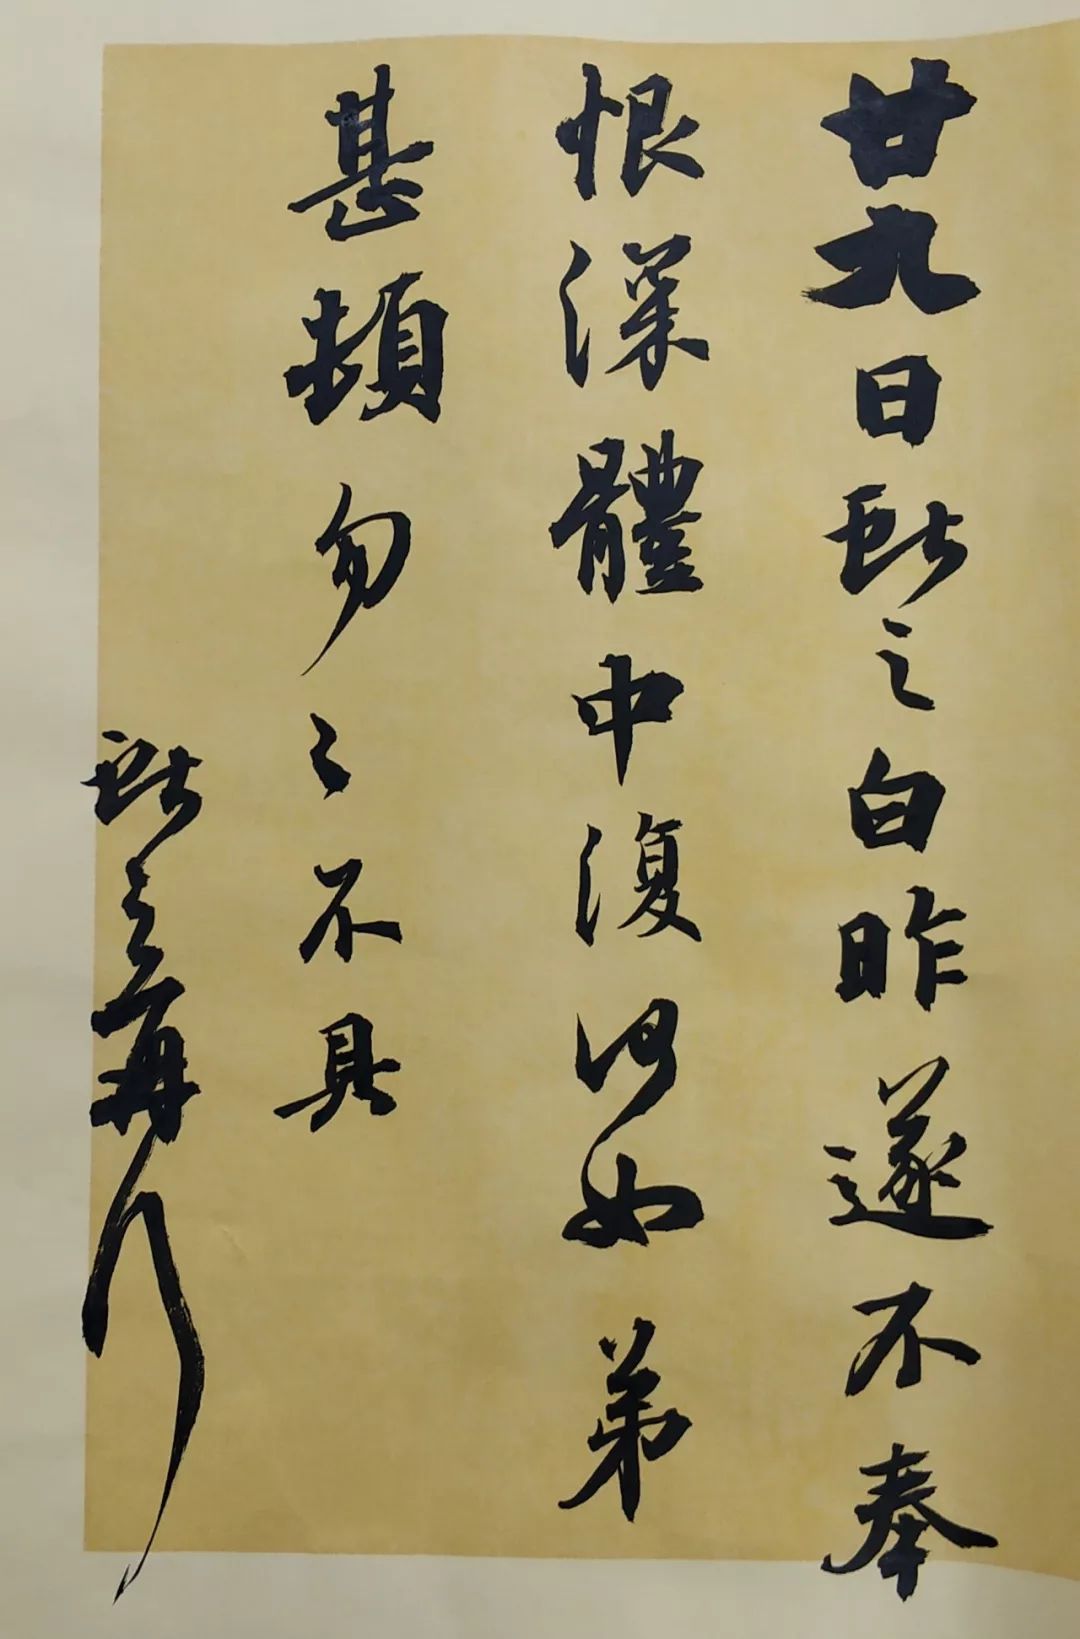 廿九日獻之白昨遂不奉
恨深體中復何如弟
甚頓勿〻不具
獻之再拜